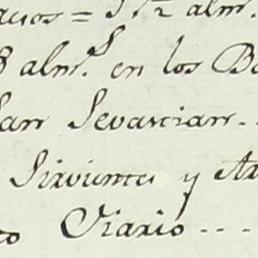 acios = 3 1/2 almr.
8 almrs. en los Ba
San Sevastian..
Sirvientes y Ar
to Diario ---